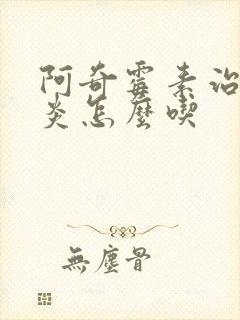 阿奇霉素治
炎怎麽喫
無塵骨